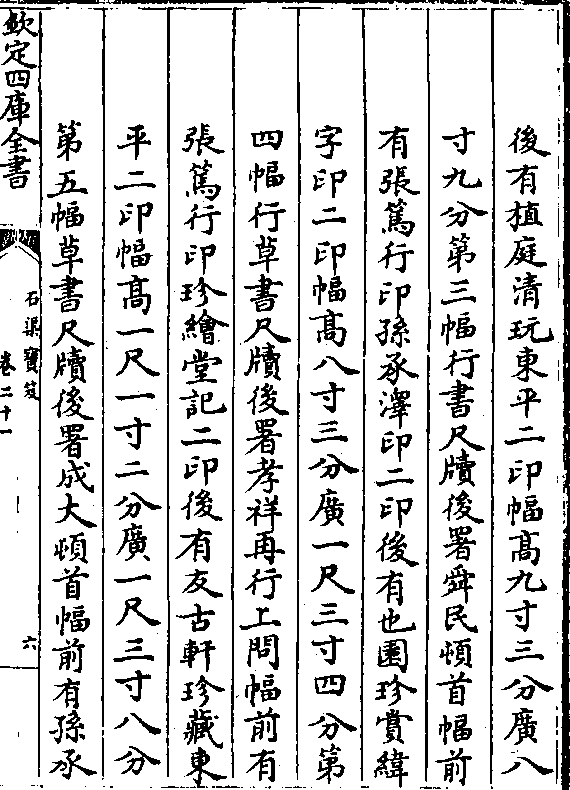 後有植庭清玩東平二印幅高九寸三分廣八
寸九分第三幅行書尺牘後署舜民頓首幅前
有張篤行印孫承澤印二印後有也園珍賞緯
字印二印幅高八寸三分廣一尺三寸四分第
四幅行草書尺牘後署孝祥再行上問幅前有
張篤行印珍繪堂記二印後有友古軒珍藏東
平二印幅高一尺一寸二分廣一尺三寸八分
第五幅草書尺牘後署成大頓首幅前有孫承
欽定四庫全書
石渠寶笈
卷二十一
六